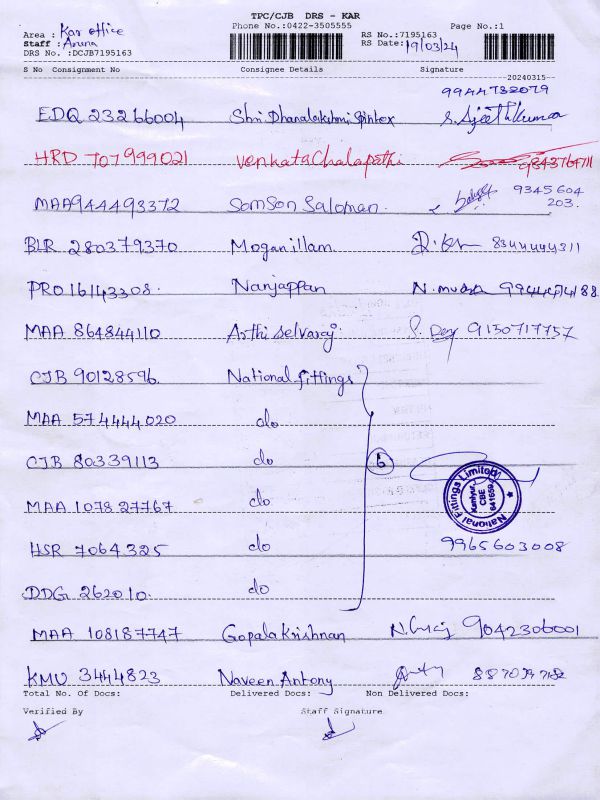 TPC/CJB DRS - KAR
Phone No.:0422-3505555
Page No.:1
Area : Kar office
Staff : Aruna
DRS No. :DCJB7195163
RS No.:7195163
RS Date: 19/03/24
S No Consignment No Consignee Details Signature
20240315
EDQ 23266004 Shri Dhanalakshmi Spintex S. Sjeethkumar
HRD 707999021 Venkatachalapathi 9843764711
MAA944493372 Samson Saloman. 9345604
203.
BLR 280379370 Moganillam 8344444311
PRO 16143308. Nanjappan
MAA 864844110 Arthi Selvaraj. 9150717757
CJB 90128596. National fittings
MAA 574444020 do
CJB 80339113 do 6
MAA 107827767 do
National Fittings Limited
Kaniyur
CBE
641659
HSR 7064325 do 9965603008
DDG 262010. do
MAA 108187747 Gopala Krishnan 9042306001
KMU 3444823 Naveen Antony
Total No. Of Docs: Delivered Docs: Non Delivered Docs:
Verified By Staff Signature